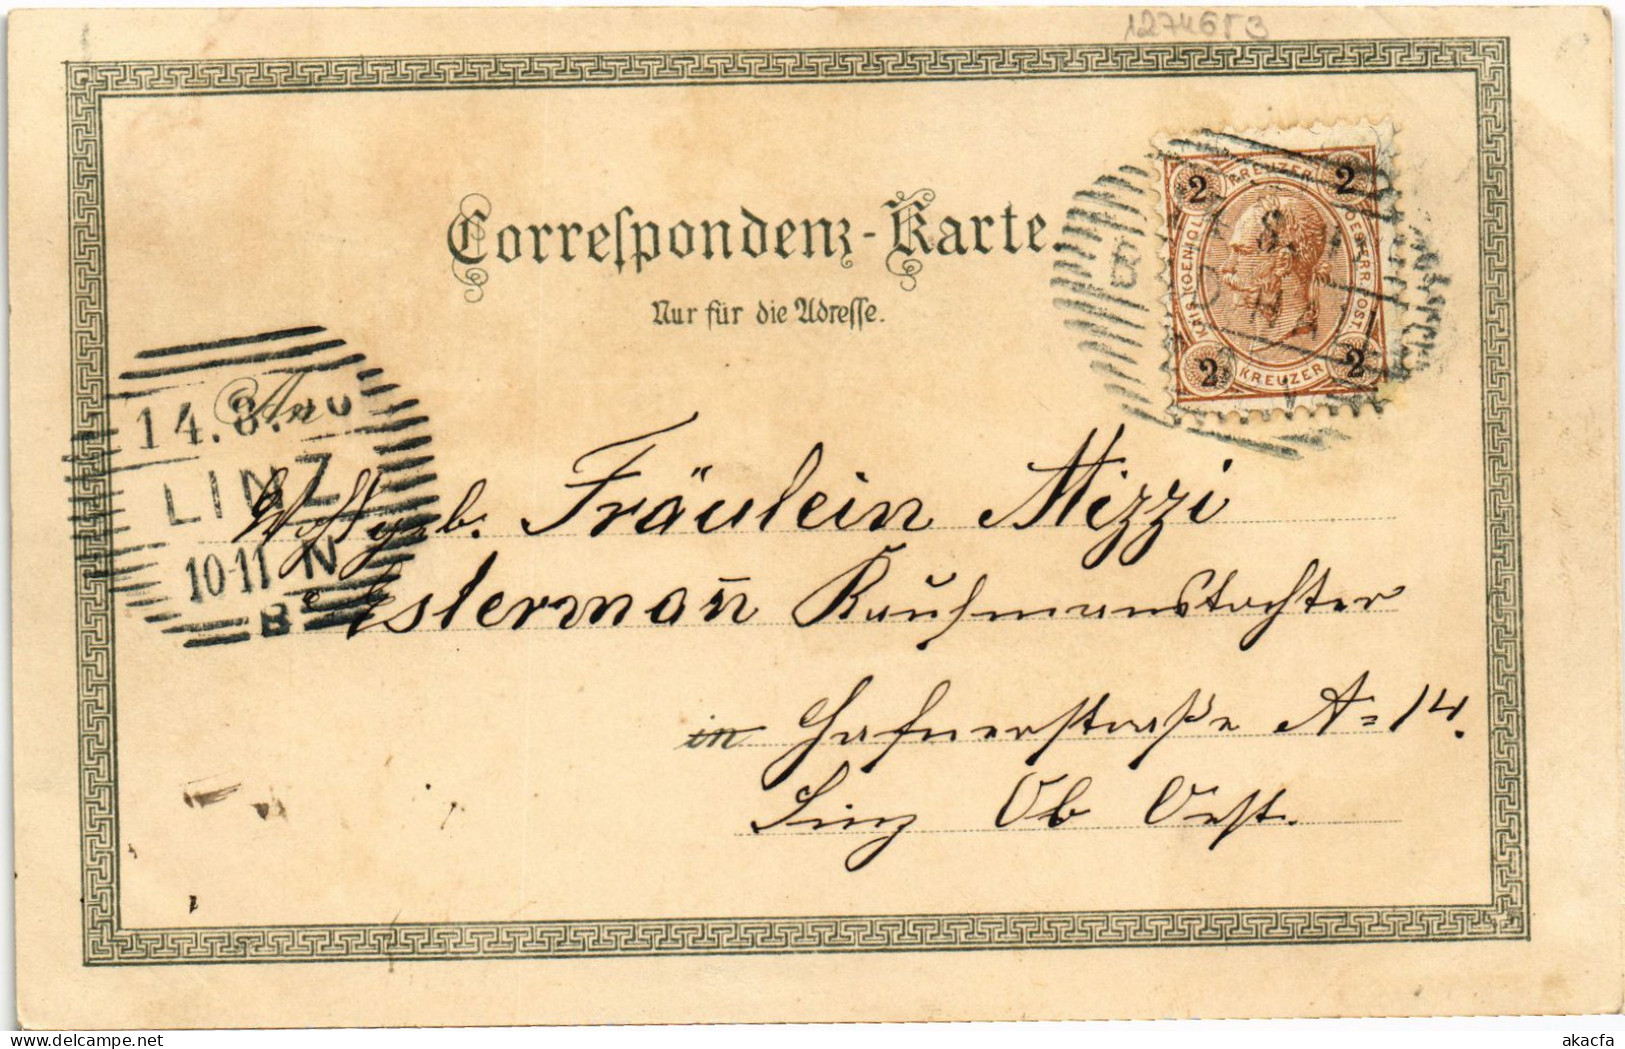 1274653
Correspondenz-Karte.
Nur für die Adresse.
2 KREUZER 2
KAIS. KOENIGL. OESTERR. POST.
2 KREUZER 2
An
14.8.
LINZ
10-11 N
B
Wohlgeb. Fräulein Mizzi
Estermañ Kaufmannstochter
in Hafnerstraße A=14.
Linz Ob Oest.
akacfa